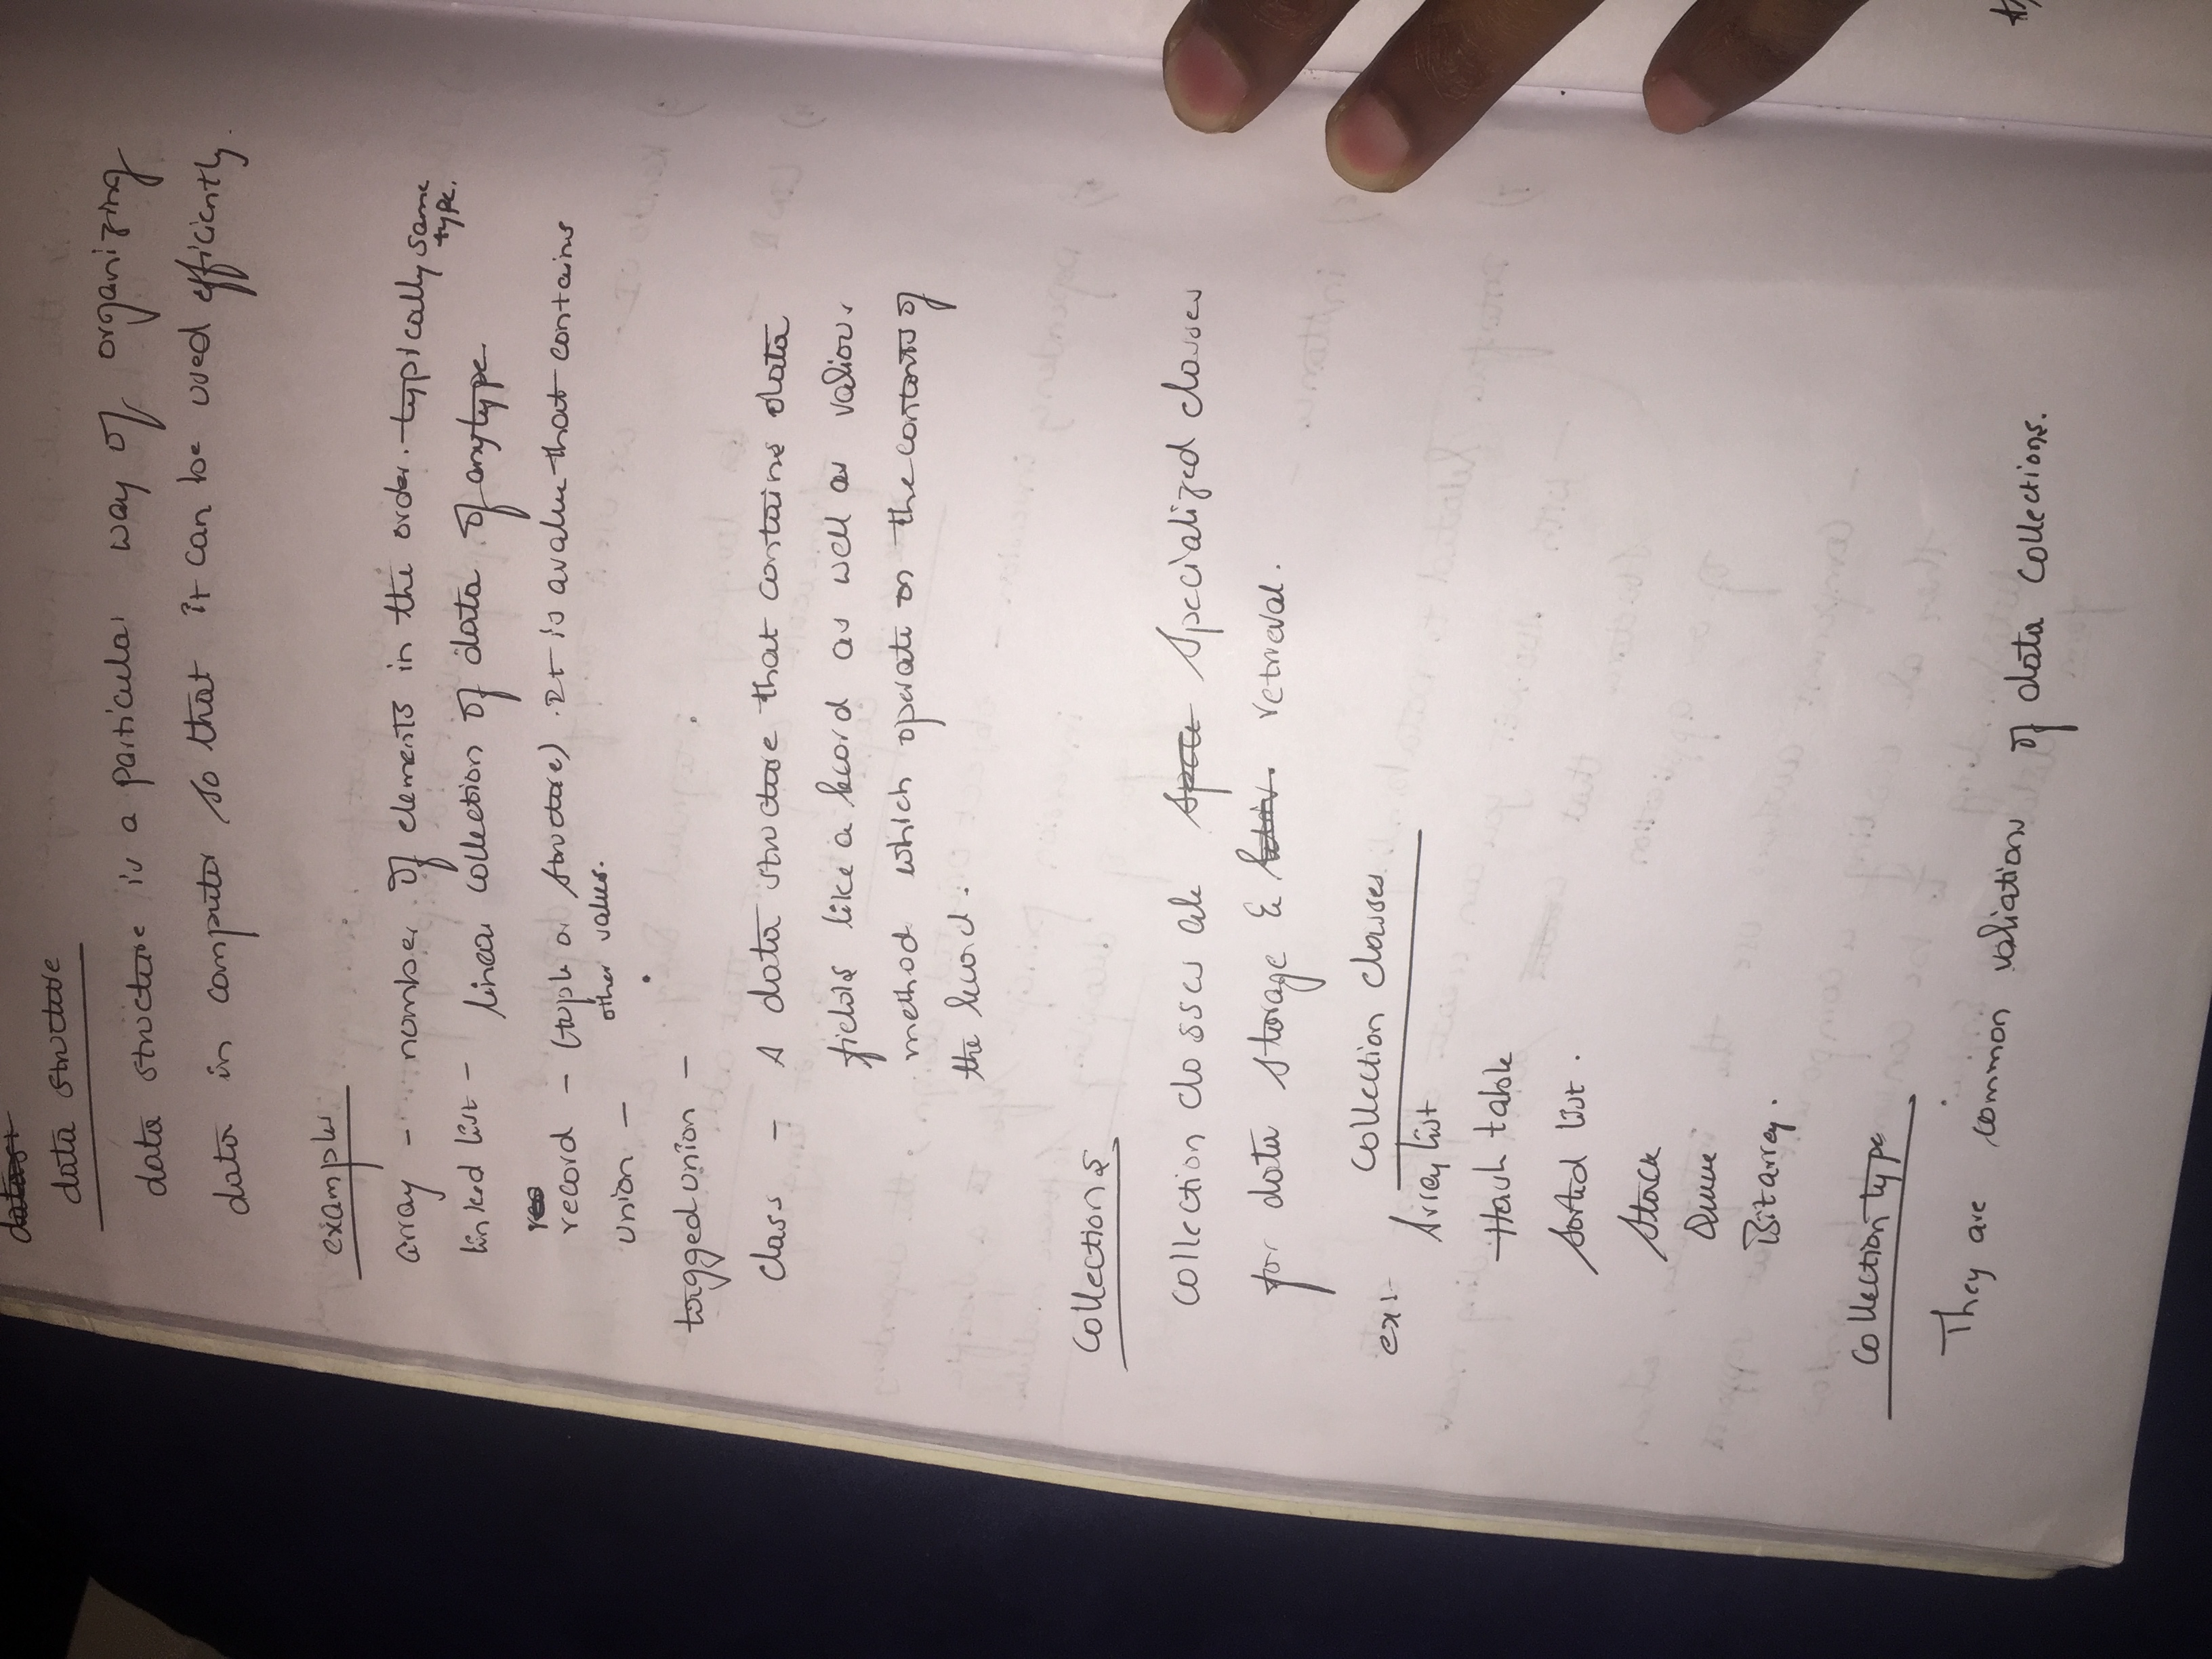 data structure
data structure is a particular way of organizing
data in computer so that it can be used efficiently.
examples
array - number of elements in the order. typically same
type.
linked list - linear collection of data of any type
record - (tuple or structure). It is a value that contains
other values.
union -
tagged union -
class - A data structure that contains data
fields like a record as well as various
method which operate on the contents of
the record.
Collections
Collection classes are specialized classes
for data storage & retrieval.
ex:- Collection classes
Array list
Hash table
Sorted list.
Stack
Queue
Bitarray.
Collection type
They are common variations of data collections.